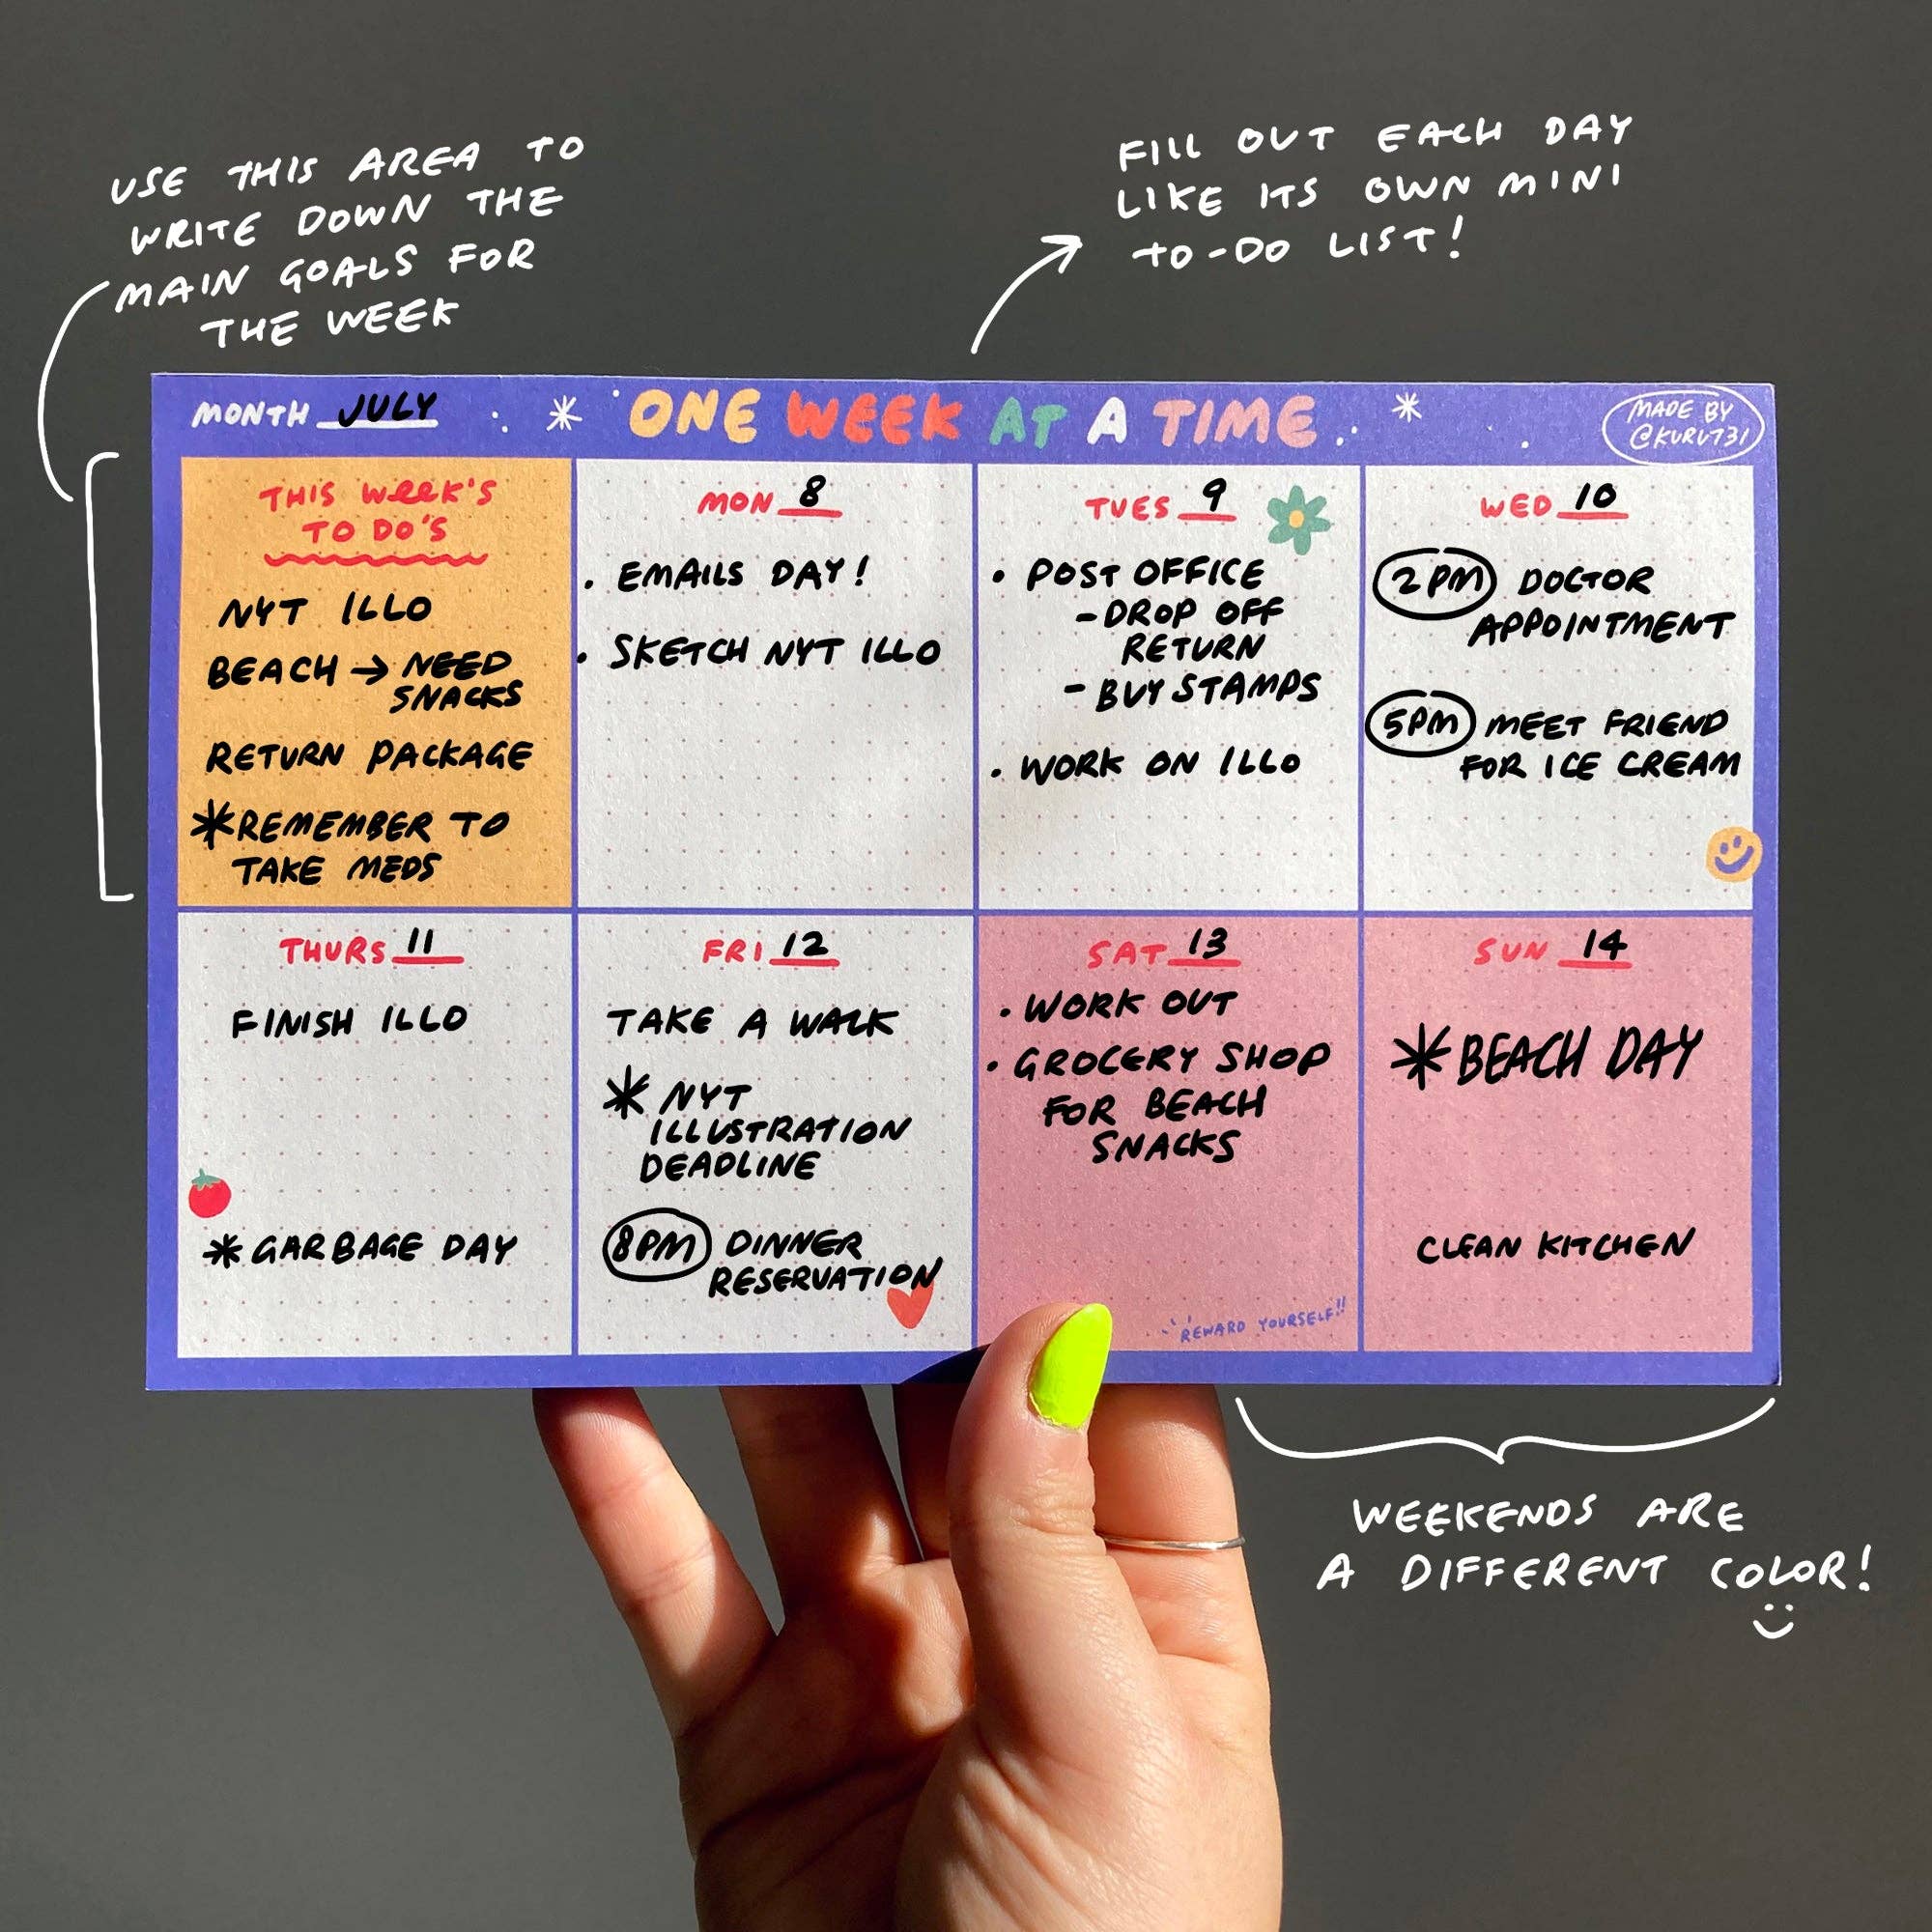 USE THIS AREA TO
WRITE DOWN THE
MAIN GOALS FOR
THE WEEK
FILL OUT EACH DAY
LIKE ITS OWN MINI
TO-DO LIST!
MONTH JULY
ONE WEEK AT A TIME
MADE BY
@KURU731
THIS WEEK'S
TO DO'S
NYT ILLO
BEACH → NEED
SNACKS
RETURN PACKAGE
*REMEMBER TO
TAKE MEDS
MON 8
• EMAILS DAY!
• SKETCH NYT ILLO
TUES 9
• POST OFFICE
- DROP OFF
RETURN
- BUY STAMPS
• WORK ON ILLO
WED 10
2PM DOCTOR
APPOINTMENT
5PM MEET FRIEND
FOR ICE CREAM
THURS 11
FINISH ILLO
*GARBAGE DAY
FRI 12
TAKE A WALK
* NYT
ILLUSTRATION
DEADLINE
8PM DINNER
RESERVATION
SAT 13
• WORK OUT
• GROCERY SHOP
FOR BEACH
SNACKS
REWARD YOURSELF!!
SUN 14
*BEACH DAY
CLEAN KITCHEN
WEEKENDS ARE
A DIFFERENT COLOR!